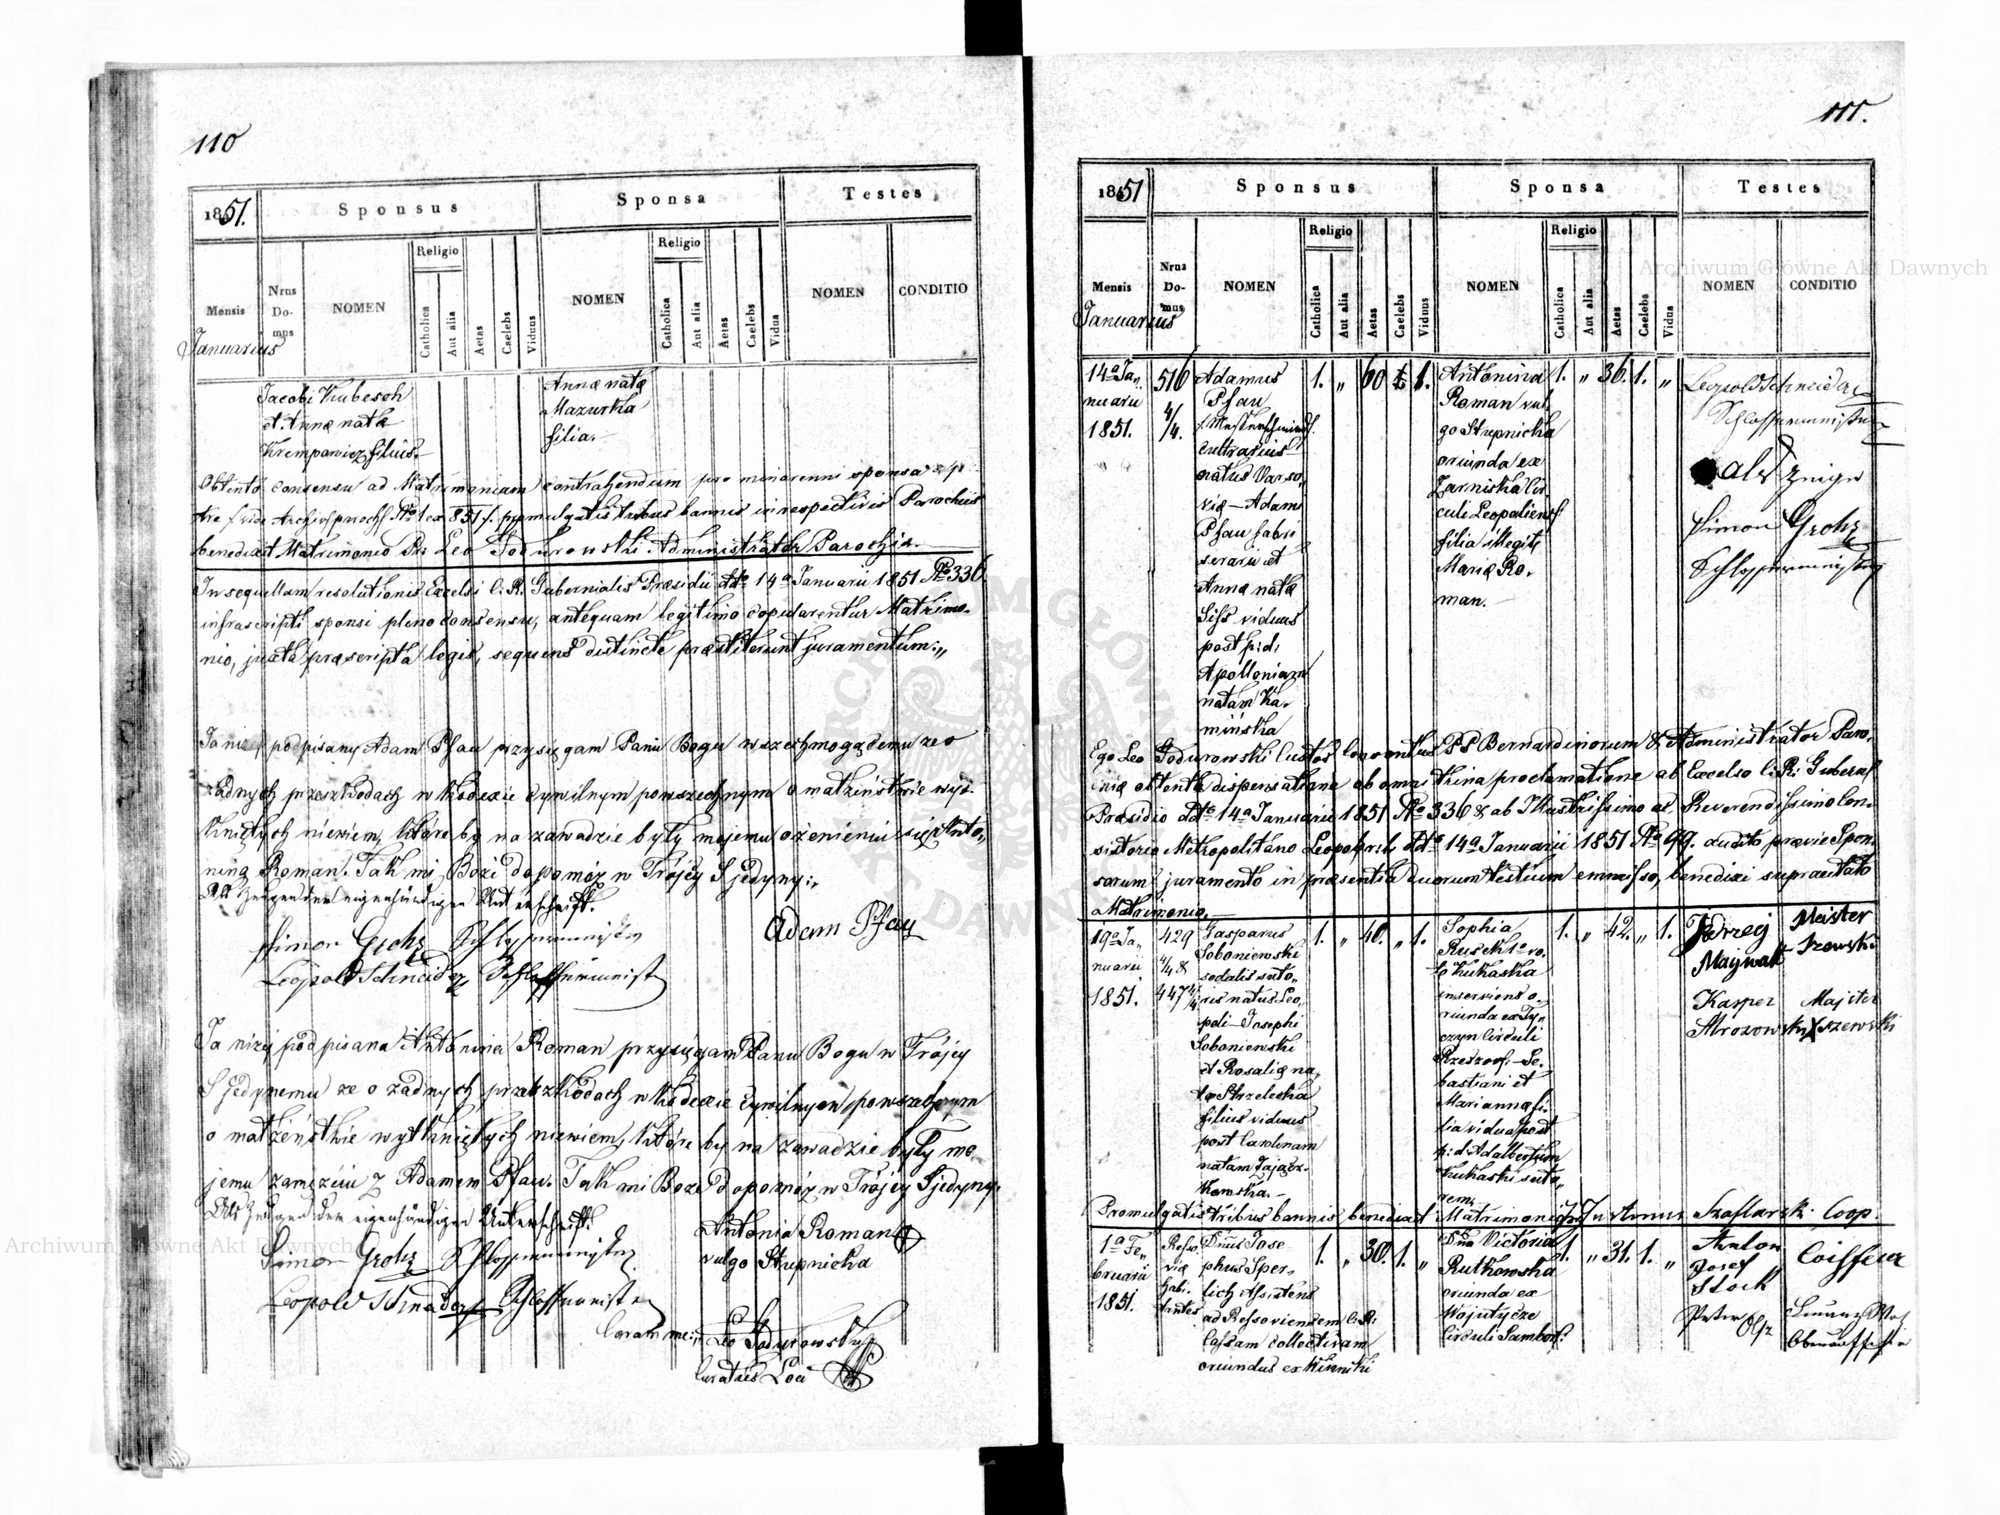 110
1851.
Sponsus
Sponsa
Testes
Mensis
Nrus Do- mus
NOMEN
Religio
Catholica
Aut alia
Aetas
Caelebs
Viduus
NOMEN
Religio
Catholica
Aut alia
Aetas
Caelebs
Vidua
NOMEN
CONDITIO
Januarius
Jacobi Kubesch
et Anna nata
Krempowicz filius.
Anna nata
Mazurka
filia.
Obtento consensu ad Matrimonium contrahendum pro minorenni sponsa a
promulgatis tribus bannis in respectivis Parochiis
benedixit Matrimonio Leo Godurowski Administrator Parochia.
In sequellam resolutionis Excelsi C. R. Gubernialis Praesidii dto 14a Januarii 1851 No 336
infrascripti sponsi pleno consensu, antequam legitimo copularentur Matrimo-
nio, juxta praescripta legis, sequens distincte praestiterunt juramentum:
Ja niżej podpisany Adam Pfau przysięgam Panu Bogu wszechmogącemu że o
żadnych przeszkodach w kodexie cywilnym powszechnym o małżeństwie wyt-
kniętych niewiem, które by na zawadzie były mojemu ożenieniu się z Anto-
niną Roman. Tak mi Boże dopomóż w Trójcy S jedyny.
Als Zeugen der eigenhändigen Unterschrift.
Simon Grohs Schlossermeister
Adam Pfau
Leopold Schneider
Ja niżej podpisana Antonina Roman przysięgam Panu Bogu w Trójcy
S jedynemu że o żadnych przeszkodach w kodexie cywilnym powszechnym
o małżeństwie wytkniętych niewiem, które by na zawadzie były mo-
jemu zamęźciu z Adamem Pfau. Tak mi Boże dopomóż w Trójcy S jedyny.
Als Zeugen der eigenhändigen Unterschrift.
Antonia Roman
Simon Grohs Schlossermeister
vulgo Stupnicka
Leopold Schneider
Coram me: Leo Godurowski
Curatus Loci
111.
1851
Sponsus
Sponsa
Testes
Mensis
Nrus Do- mus
NOMEN
Religio
Catholica
Aut alia
Aetas
Caelebs
Viduus
NOMEN
Religio
Catholica
Aut alia
Aetas
Caelebs
Vidua
NOMEN
CONDITIO
Januarius
14a Ja-
nuarii
1851.
516
4/4.
Adamus
Pfau
cultrarius
natus Varso-
via - Adam
Pfau fabri
serarii et
Anna nata
Siss viduus
post p: d:
Apolloniam
natam Ka-
mińska
1. " 60 1.
Antonina
Roman vul-
go Stupnicka
oriunda ex
Zarniska Cir-
culi Leopoliens
filia illegit:
Maria Ro-
man.
1. " 36. 1. "
Leopold Schneider
Schlossermeister
als Zeuge
Simon Grohs
Schlossermeister
Ego Leo Godurowski Custos Conventus PP Bernardinorum & Administrator Paro-
chia obtenta dispensatione ab omni trina proclamatione ab Excelso C: R: Gubern
Praesidio dto 14a Januarii 1851 No 336 & ab Illustrissimo ac Reverendissimo Con-
sistorio Metropolitano Leopol: r. l. dto 14a Januarii 1851 No 99. audito praevie Spon-
sorum juramento in praesentia duorum testium emmisso, benedixi supracitato
Matrimonio.
19a Ja-
nuarii
1851.
429
4/4 &
447 4/4
Gasparus
Soboniewski
sodalis suto-
ris natus Leo-
poli - Josephi
Soboniewski
et Rosalia na-
ta Strzelecka
filius viduus
post Carolinam
natam Zającz-
kowska.
1. " 40. " 1.
Sophia
Rusek 1o vo-
to Kukaska
inserviens o-
riunda ex Ty-
czyn Circuli
Rzeszov. - Se-
bastiani et
Marianna fi-
lia vidua post
p: d: Adalbertum
Kukaski suto-
rem.
1. " 42. " 1.
Jędrzej
Maywalt
Majster
szewski
Kasper
Mrozowski
Majster
szewski
Promulgatis tribus bannis benedixit Matrimonio Szaflarski Coop.
1a Fe-
bruarii
1851.
Resso-
via
habi-
tantes
Dnus Jose-
phus Sper-
lich Assistens
ad Ressoviensem C: R:
Cassam collectivam
oriundus ex Winniki
1. " 30. 1. "
Dna Victoria
Rutkowska
oriunda ex
Wojutycze
Circuli Sambor:
1. " 31. 1. "
Anton
Josef
Stock
Coiffeur
Archiwum Główne Akt Dawnych
Archiwum Główne Akt Dawnych
ARCHIWUM GŁÓWNE AKT DAWNYCH